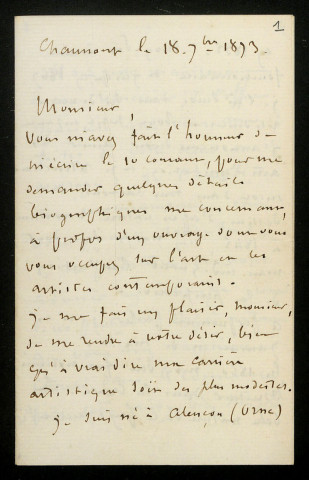 1
Chaumont le 18. 7bre 1893.
Monsieur,
Vous m'avez fait l'honneur de
m'écrire le 10 courant, pour me
demander quelques détails
biographiques me concernant,
à propos d'un ouvrage dont vous
vous occupez sur l'art et les
artistes contemporains.
Je me fais un plaisir, Monsieur,
de me rendre à votre désir, bien
qu'à vrai dire ma carrière
artistique soit des plus modestes.
Je suis né à Alençon (Orne)